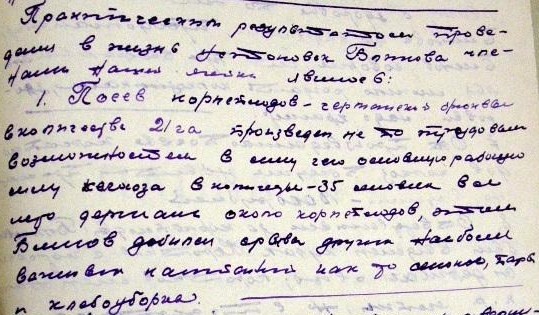 Практическим результатом прове-
дения в жизнь установок Блинова чле-
нами нашей ячейки явилось:
1. Посев корнеплодов-
в количестве 21 га произведен не по трудовым
возможностям в силу чего основную рабочую
силу колхоза в количестве-35 человек все
лето держали около корнеплодов, этим
Блинов добился срыва других наиболее
важных кампаний как то сенокос, пары
и хлебоуборка.